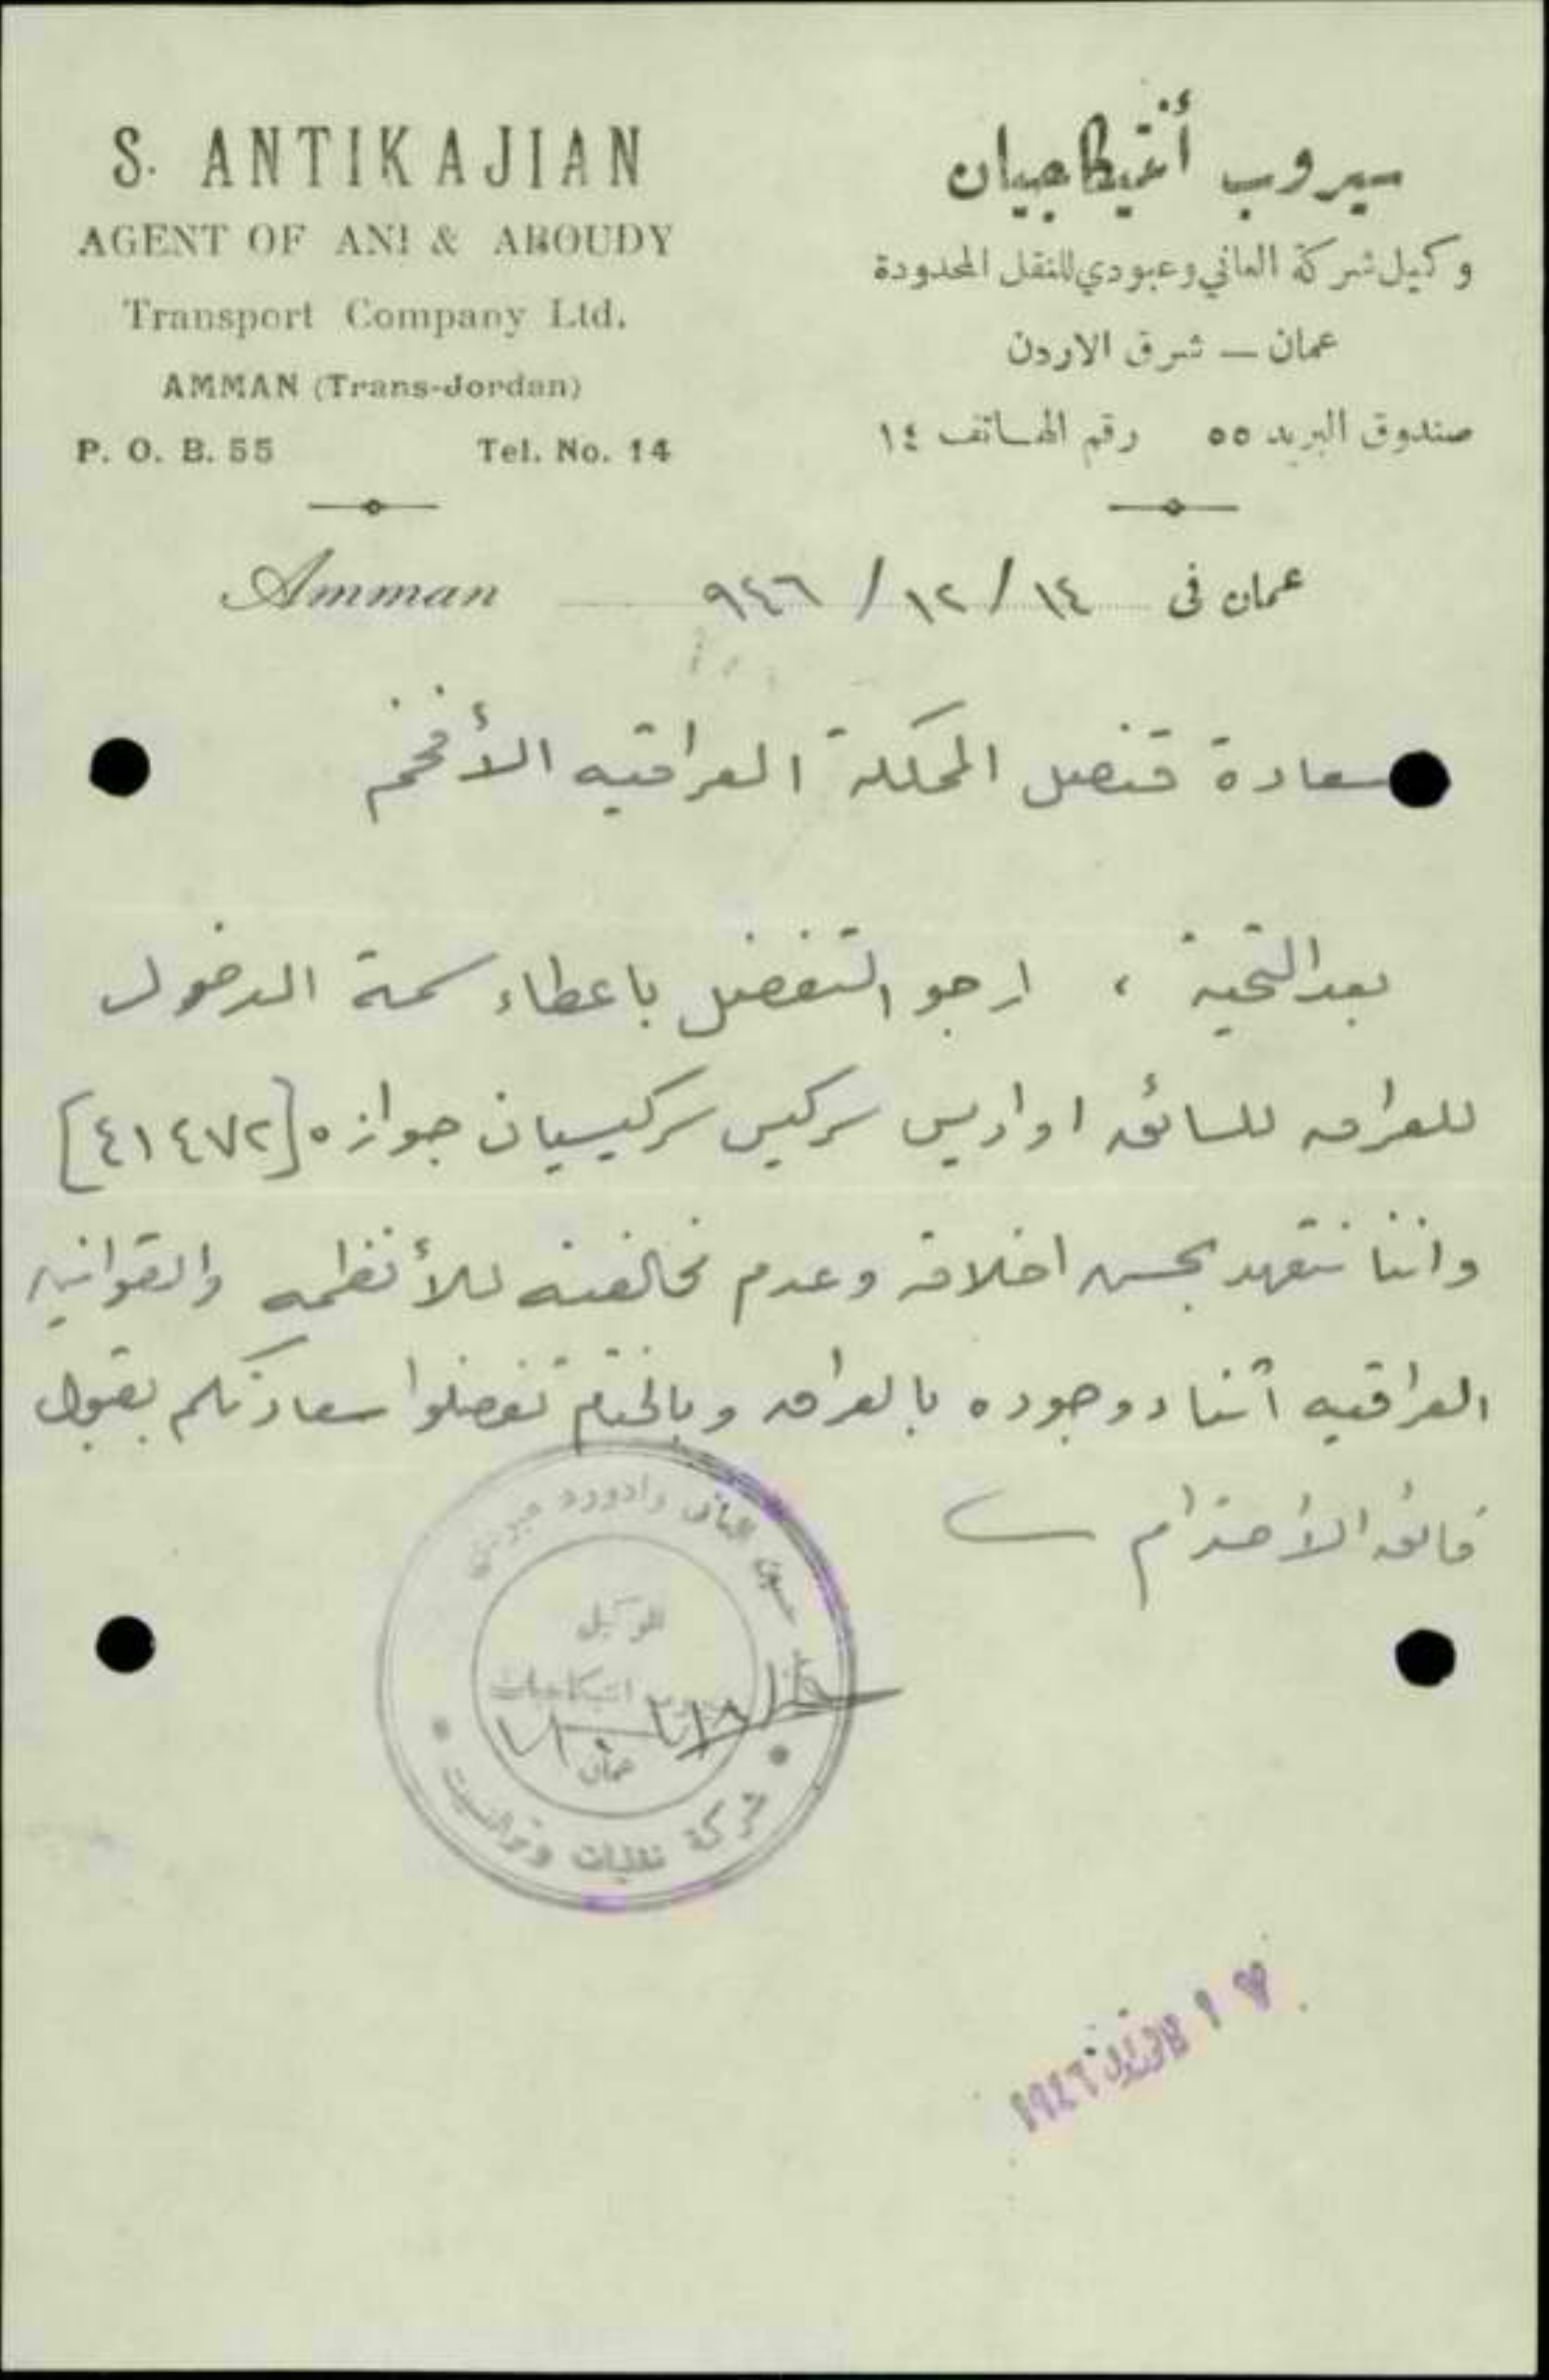 S. ANTIKAJIAN
AGENT OF ANI & ABOUDY
Transport Company Ltd.
AMMAN (Trans-Jordan)
P. O. B. 55 Tel. No. 14
سيروب أنتيكاجيان
وكيل شركة العاني وعبودي للنقل المحدودة
عمان — شرق الاردن
صندوق البريد ٥٥ رقم الهاتف ١٤
Amman عمان في ١٤ / ١٢ / ٩٤٦
سعادة قنصل المملكة العراقيه الأفخم
بعد التحية ، ارجو التفضل باعطاء سمة الدخول
للعراق للسائق اواديس سركيس سركيسيان جوازه [٤١٤٧٢]
واننا نتعهد بحسن اخلاقه وعدم مخالفته للأنظمه والقوانين
العراقيه أثناء وجوده بالعراق وبالختام تفضلوا سعادتكم بقبول
فائق الأحترام
العاني وادورد
الوكيل
انتيكاجيان
عمان
شركة نقليات وترانسيت
١٩٤٦